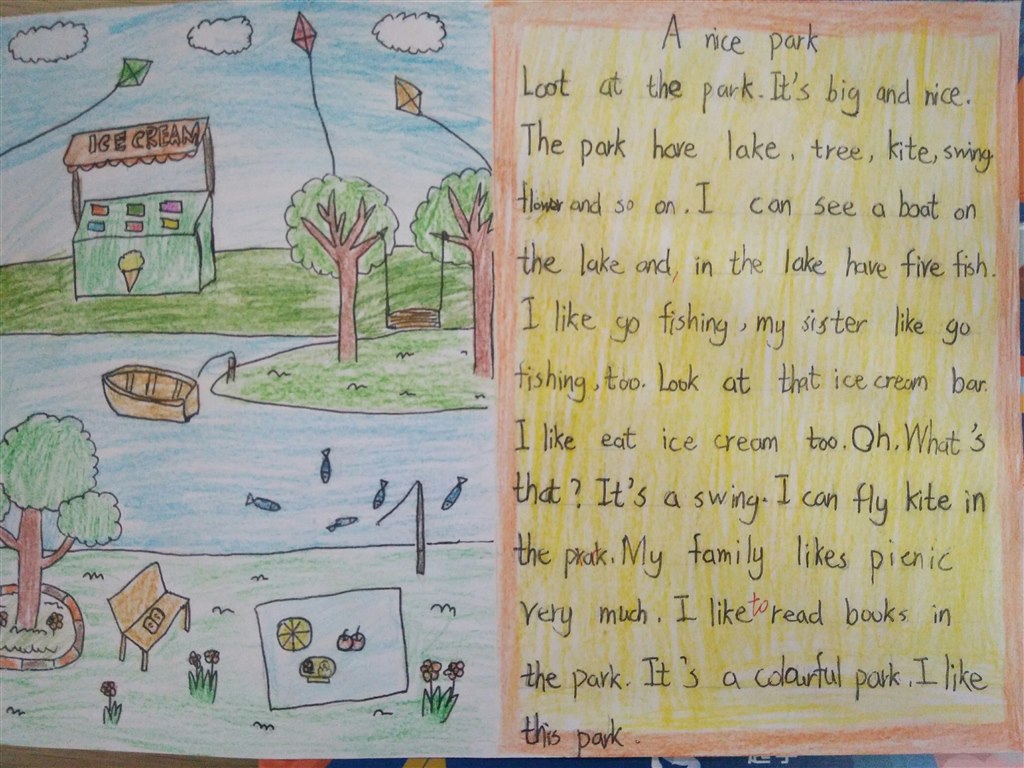 ICE CREAM
A nice park
Loot at the park. It's big and nice.
The park have lake, tree, kite, swing
flower and so on. I can see a boat on
the lake and, in the lake have five fish.
I like go fishing, my sister like go
fishing, too. Look at that ice cream bar.
I like eat ice cream too. Oh. What's
that? It's a swing. I can fly kite in
the prak. My family likes picnic
very much. I like to read books in
the park. It's a colourful park. I like
this park.